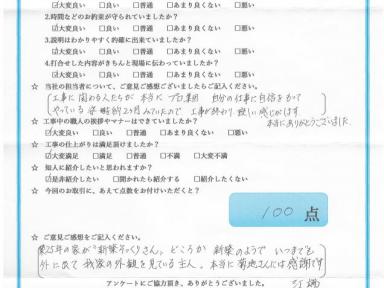 ☑大変良い □良い □普通 □あまり良くない □悪い
2.時間などのお約束が守られていましたか?
☑大変良い □良い □普通 □あまり良くない □悪い
3.説明はわかりやすく的確に出来ていましたか?
☑大変良い □良い □普通 □あまり良くない □悪い
4.打合せした内容がきちんと現場に伝わっていましたか?
☑大変良い □良い □普通 □あまり良くない □悪い
☆ 当社の担当者について、ご意見ご感想ございましたらご記入ください。
工事に関わる人たちが 本当に プロ集団 自分の仕事に自信をもって
やっている 姿 約2ヶ月みていたので 工事が終わり 寂しい感じがします
本当にありがとうございました
☆ 工事中の職人の挨拶やマナーはできていましたか?
☑大変良い □良い □普通 □あまり良くない □悪い
☆ 工事の仕上がりは満足頂けましたか?
☑大変満足 □満足 □普通 □不満 □大変不満
☆ 知人に紹介したいと思われますか?
☑是非紹介したい □聞かれたら紹介する □紹介したくない
☆ 今回のお取引に、あえて点数をお付けいただくと?
100 点
☆ ご意見ご感想をご記入ください。
築25年の家が"新築そっくりさん"どころか 新築のようで いつまでも
外に出て 我家の外観を見ている主人。本当に菊地さんには感謝です
アンケートにご協力頂き、ありがとうございました。